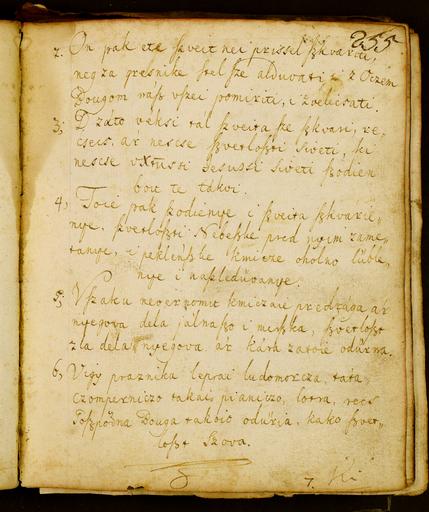 255
2. On pak ete szveit nei prissel szkvariti,
neg za gresnike szel sze alduvati, i z Oczem
Bougom nasz vszei pomiriti, i zvelicsati.
3, D záto veksi tál szveita sze szkvari, re,
csecs, ár nescse szvetloszti siveti, ki
nescse vXtussi Jesussi siveti szodien
bou te tákvi.
4, Toie pak szodienye i szveita szkvarie,
nye. szvetloszti Nebeszke pred nyim zame,
tanye, i peklenszke kmicze oholno lüble,
nye i naszledüvanye.
5, Vszaki neverponit kmiczne predzaga, ár
nyegova dela jálnaszo i mrszka, szvetloszt
zla dela nyegova ár kárá zatoie odürna.
6, Vigy praznika leprai ludomorcza, tata
czomperniczo takai pianiczo, lotra, recs
Goszpodna Bouga takoie odürja, kako szvet,
loszt Szova.
7. Ki